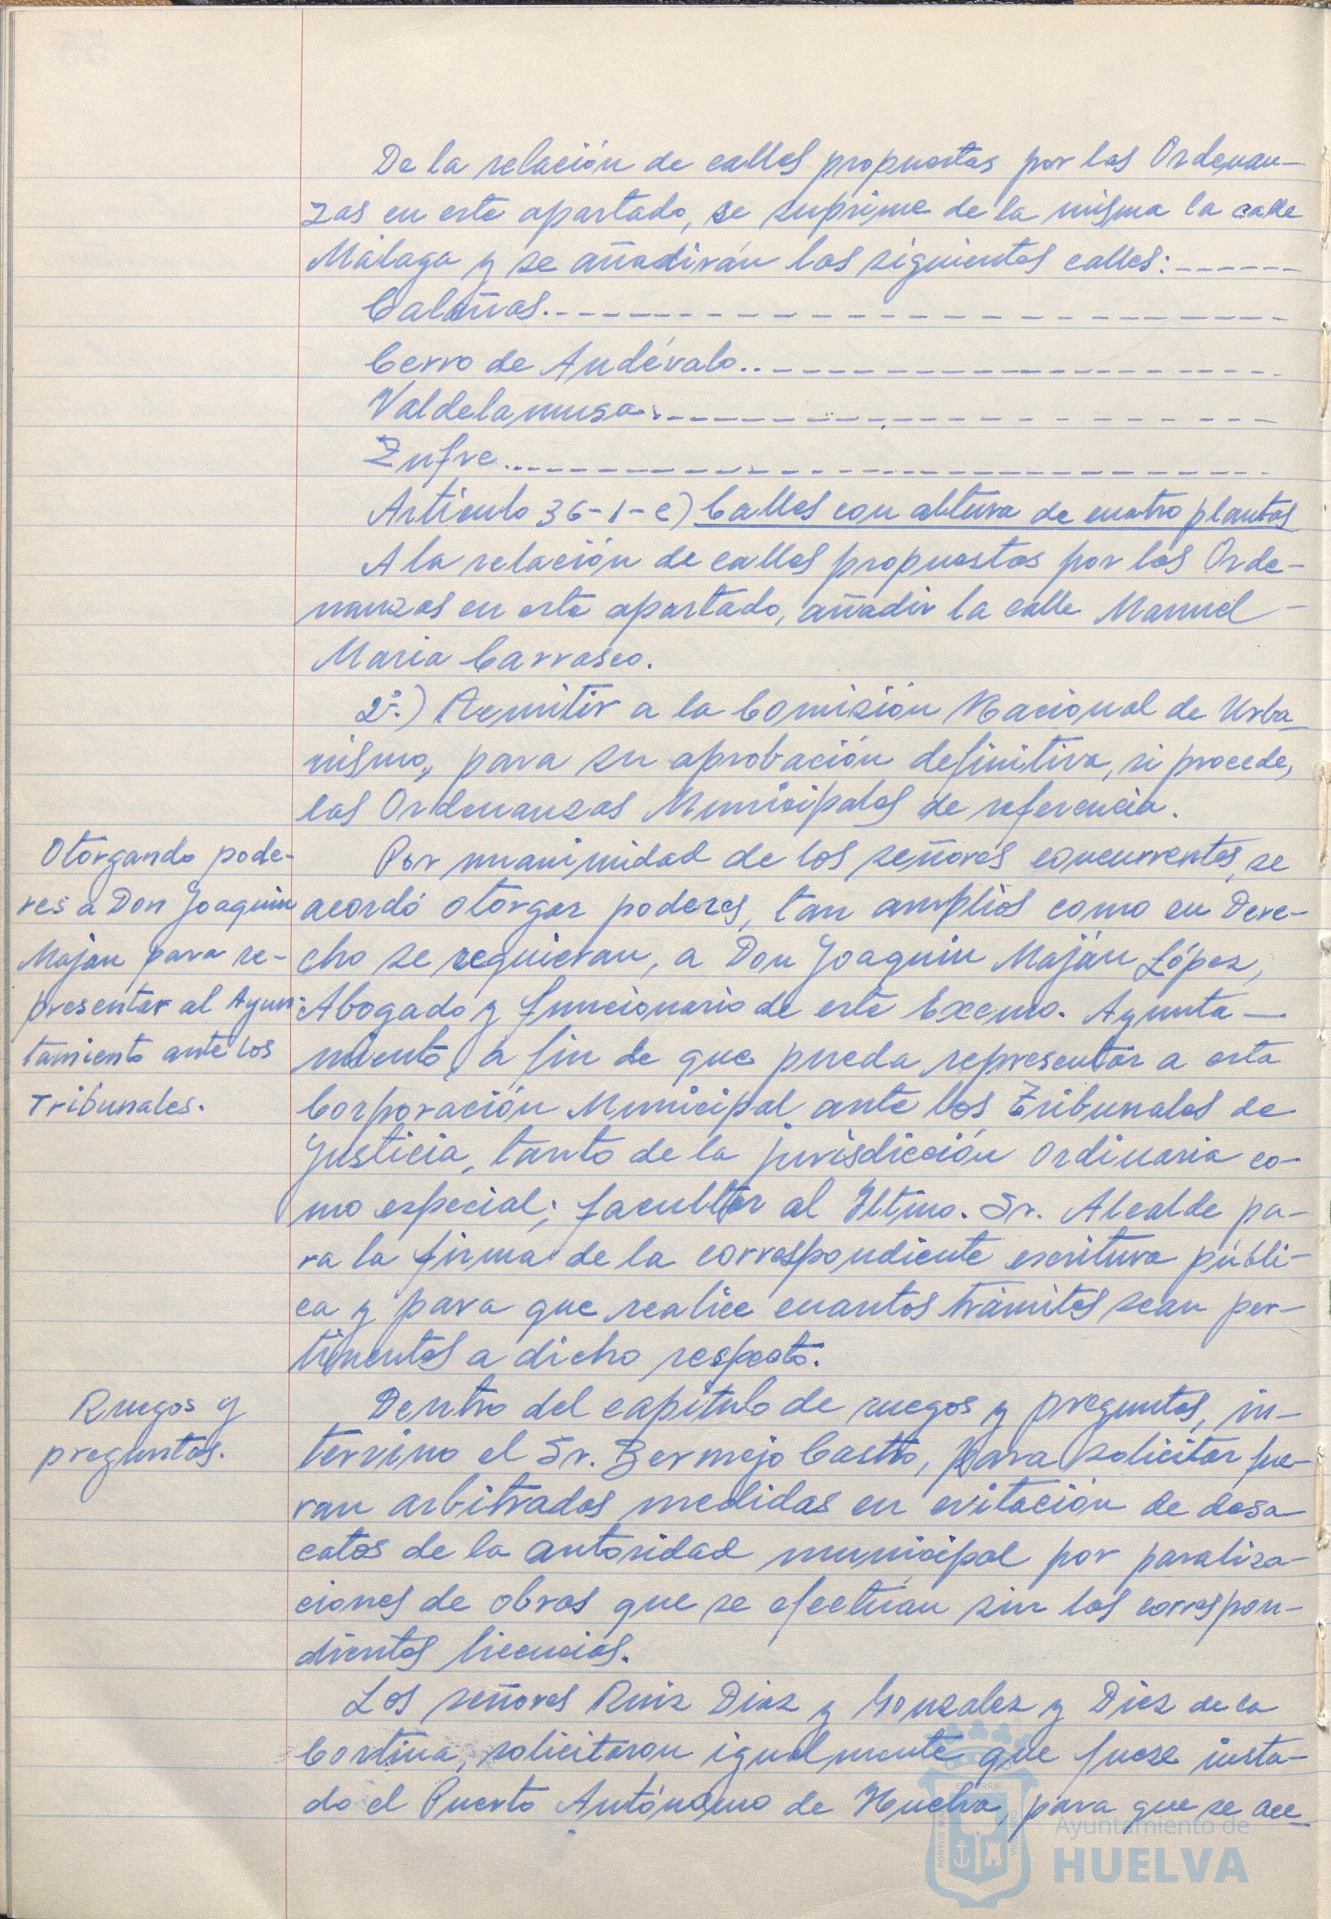 De la relación de calles propuestas por las Ordenan-
zas en este apartado, se suprime de la misma la calle
Málaga y se añadirán las siguientes calles:------
Calañas.---------------
Cerro de Andévalo..---------------
Valdelamusa.---------------
Zufre...---------------
Artículo 36-1-e) Calles con altura de cuatro plantas
A la relación de calles propuestas por las Orde-
nanzas en este apartado, añadir la calle Manuel -
Maria Carrasco.
2º.) Remitir a la Comisión Nacional de Urba-
nismo, para su aprobación definitiva, si procede,
las Ordenanzas Municipales de referencia.
Otorgando pode-
res a Don Joaquin
Maján para re-
presentar al Ayun-
tamiento ante los
Tribunales.
Por unanimidad de los señores concurrentes, se
acordó otorgar poderes, tan amplios como en Dere-
cho se requieran, a Don Joaquin Maján López,
Abogado y funcionario de este Excmo. Ayunta-
miento, a fin de que pueda representar a esta
Corporación Municipal ante los Tribunales de
Justicia, tanto de la jurisdicción Ordinaria co-
mo especial; facultar al Iltmo. Sr. Alcalde pa-
ra la firma de la correspondiente escritura públi-
ca y para que realice cuantos trámites sean per-
tinentes a dicho respecto.
Ruegos y
preguntas.
Dentro del capítulo de ruegos y preguntas, in-
tervino el Sr. Bermejo Castro, para solicitar fue-
ran arbitradas medidas en evitación de desa-
catos de la autoridad municipal por paraliza-
ciones de obras que se efectúan sin las correspon-
dientes licencias.
Los señores Ruiz Diaz y Gonzalez y Diez de la
Cortina, solicitaron igualmente que fuese insta-
do el Puerto Autónomo de Huelva, para que se ace-
Ayuntamiento de
HUELVA